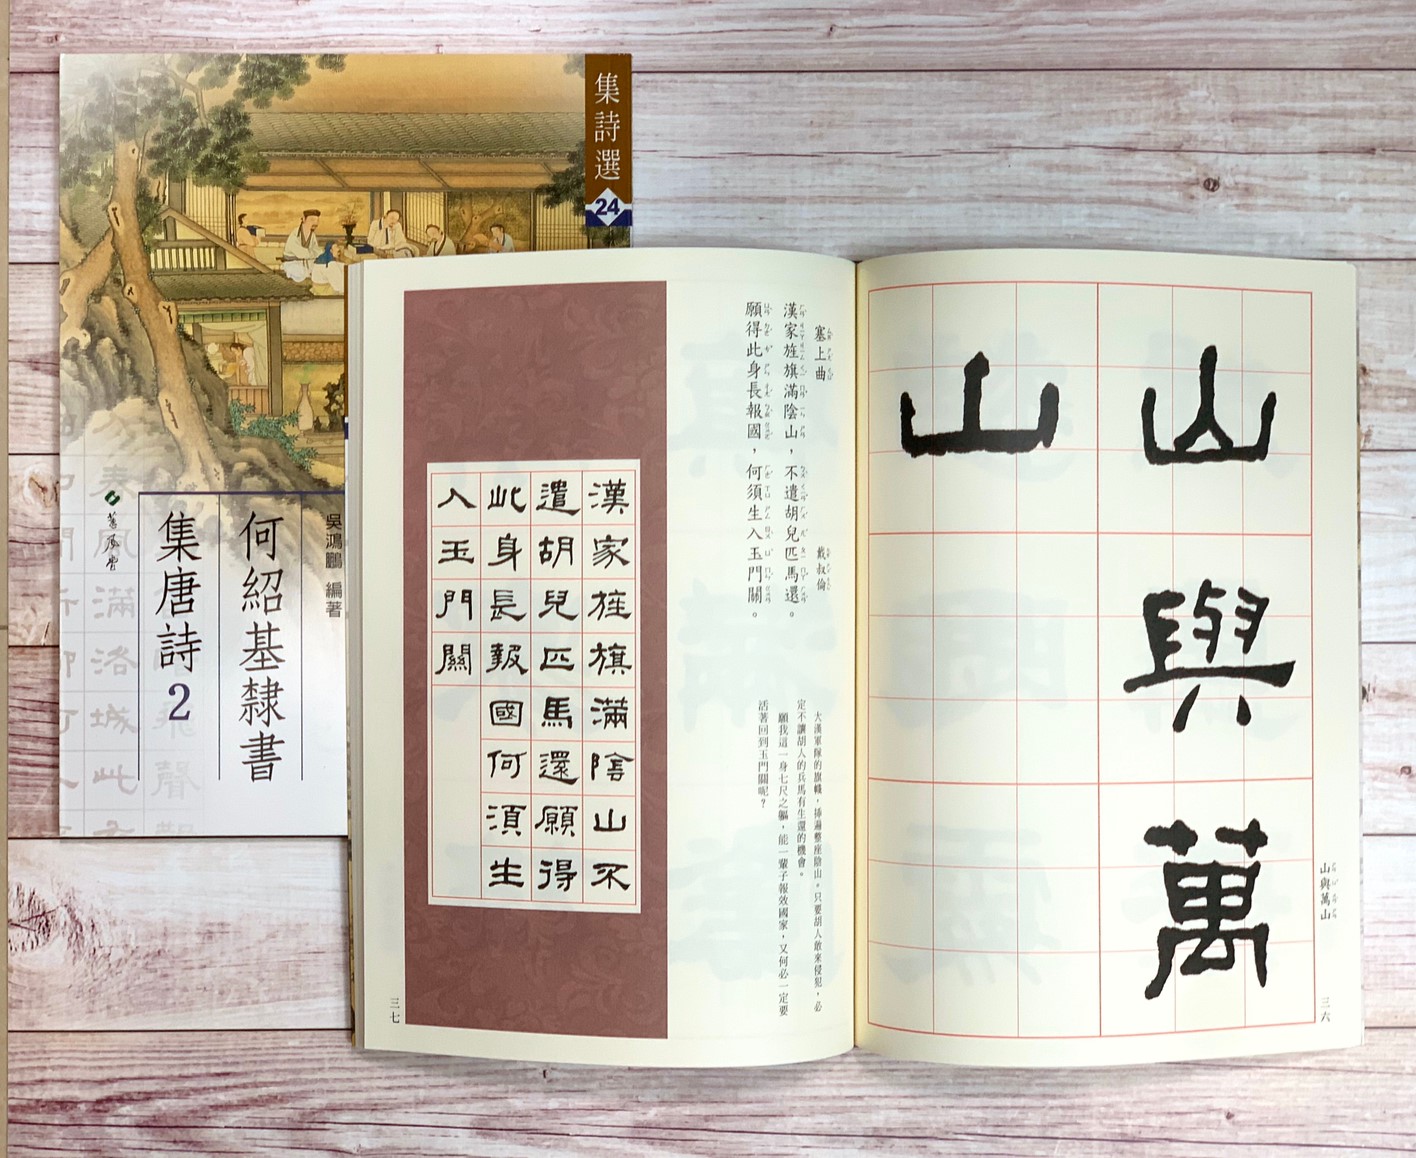 集詩選
24
吳鴻鵬 編著
何紹基隸書
集唐詩2
蕙風堂
山與萬
山
山與萬山
三六
塞上曲 戴叔倫
漢家旌旗滿陰山，不遣胡兒匹馬還。
願得此身長報國，何須生入玉門關。
大漢軍隊的旗幟，插遍整座陰山。只要胡人敢來侵犯，必
定不讓胡人的兵馬有生還的機會。
願我這一身七尺之軀，能一輩子報效國家，又何必一定要
活著回到玉門關呢？
漢家旌旗滿陰山不
遣胡兒匹馬還願得
此身長報國何須生
入玉門關
三七